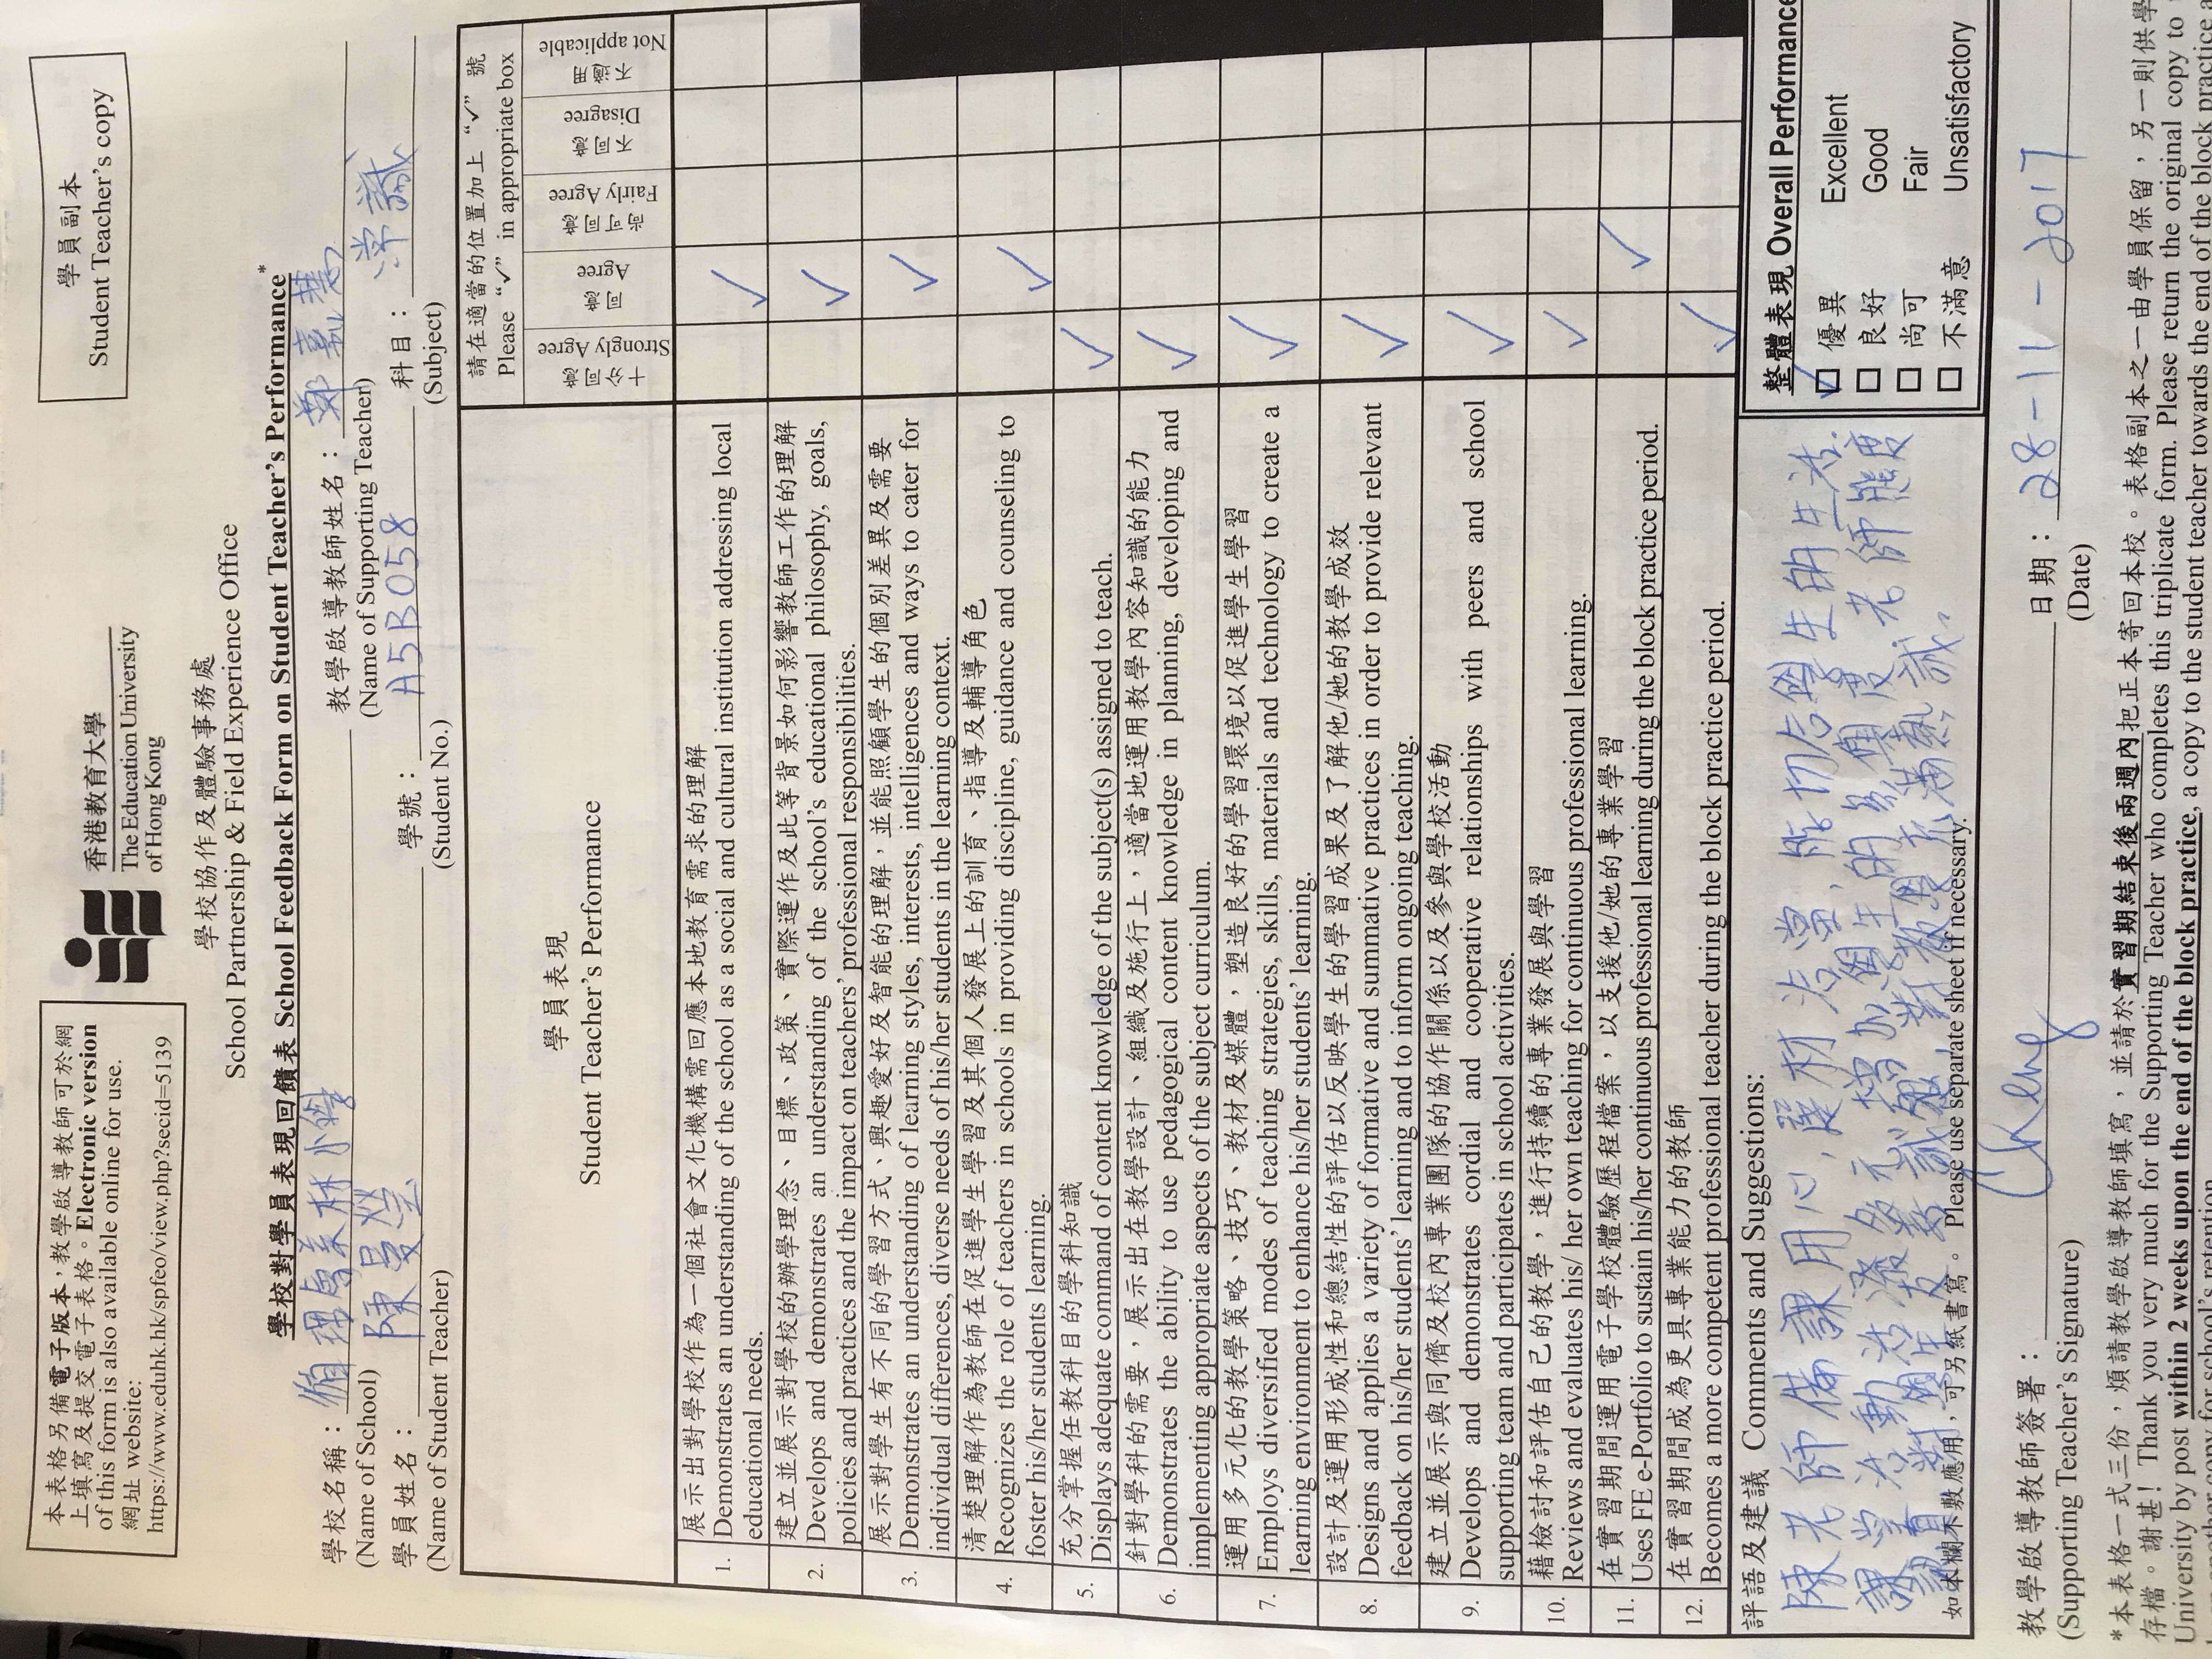 本表格另備電子版本，教學啟導教師可於網
上填寫及提交電子表格。Electronic version
of this form is also available online for use.
網址 website:
https://www.eduhk.hk/spfeo/view.php?secid=5139
香港教育大學
The Education University
of Hong Kong
學員副本
Student Teacher's copy
學校協作及體驗事務處
School Partnership & Field Experience Office
學校對學員表現回饋表 School Feedback Form on Student Teacher's Performance*
學校名稱：
(Name of School)
教學啟導教師姓名：鄭嘉慧
(Name of Supporting Teacher)
學員姓名：陳曼瑩
(Name of Student Teacher)
學號：A5B058
(Student No.)
科目：常識
(Subject)
學員表現
Student Teacher's Performance
請在適當的位置加上 "✓" 號
Please "✓" in appropriate box
十分同意 Strongly Agree
同意 Agree
尚可同意 Fairly Agree
不同意 Disagree
不適用 Not applicable
1. 展示出對學校作為一個社會文化機構需回應本地教育需求的理解
Demonstrates an understanding of the school as a social and cultural institution addressing local
educational needs.
✓
2. 建立並展示對學校的辦學理念、目標、政策、實際運作及此等背景如何影響教師工作的理解
Develops and demonstrates an understanding of the school's educational philosophy, goals,
policies and practices and the impact on teachers' professional responsibilities.
✓
3. 展示對學生有不同的學習方式、興趣愛好及智能的理解，並能照顧學生的個別差異及需要
Demonstrates an understanding of learning styles, interests, intelligences and ways to cater for
individual differences, diverse needs of his/her students in the learning context.
✓
4. 清楚理解作為教師在促進學生學習及其個人發展上的訓育、指導及輔導角色
Recognizes the role of teachers in schools in providing discipline, guidance and counseling to
foster his/her students learning.
✓
5. 充分掌握任教科目的學科知識
Displays adequate command of content knowledge of the subject(s) assigned to teach.
✓
6. 針對學科的需要，展示出在教學設計、組織及施行上，適當地運用教學內容知識的能力
Demonstrates the ability to use pedagogical content knowledge in planning, developing and
implementing appropriate aspects of the subject curriculum.
✓
7. 運用多元化的教學策略、技巧、教材及媒體，塑造良好的學習環境以促進學生學習
Employs diversified modes of teaching strategies, skills, materials and technology to create a
learning environment to enhance his/her students' learning.
✓
8. 設計及運用形成性和總結性的評估以反映學生的學習成果及了解他/她的教學成效
Designs and applies a variety of formative and summative practices in order to provide relevant
feedback on his/her students' learning and to inform ongoing teaching.
✓
9. 建立並展示與同儕及校內專業團隊的協作關係以及參與學校活動
Develops and demonstrates cordial and cooperative relationships with peers and school
supporting team and participates in school activities.
✓
10. 藉檢討和評估自己的教學，進行持續的專業發展與學習
Reviews and evaluates his/ her own teaching for continuous professional learning.
✓
11. 在實習期間運用電子學校體驗歷程檔案，以支援他/她的專業學習
Uses FE e-Portfolio to sustain his/her continuous professional learning during the block practice period.
✓
12. 在實習期間成為更具專業能力的教師
Becomes a more competent professional teacher during the block practice period.
✓
評語及建議 Comments and Suggestions:
陳老師備課用心，選材恰當，能切合學生的生活.
課堂活動活潑多元，增加學生的參與度。老師態度
對學生友善誠懇，對教學充滿熱誠。
如本欄不敷應用，可另紙書寫。 Please use separate sheet if necessary.
整體表現 Overall Performance
✓ □ 優異 Excellent
□ 良好 Good
□ 尚可 Fair
□ 不滿意 Unsatisfactory
教學啟導教師簽署：
(Supporting Teacher's Signature)
日期：28-11-2017
(Date)
*本表格一式三份，煩請教學啟導教師填寫，並請於實習期結束後兩週內把正本寄回本校。表格副本之一由學員保留，另一則供學
存檔。謝甚！ Thank you very much for the Supporting Teacher who completes this triplicate form. Please return the original copy to
University by post within 2 weeks upon the end of the block practice, a copy to the student teacher towards the end of the block practice
another copy for school's retention